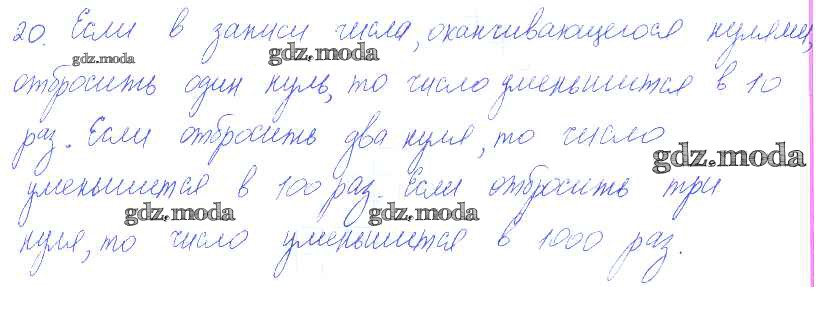 20. Если в записи числа, оканчивающегося нулями,
gdz.moda gdz.moda
отбросить один нуль, то число уменьшится в 10
раз. Если отбросить два нуля, то число
gdz.moda
уменьшится в 100 раз. Если отбросить три
gdz.moda gdz.moda
нуля, то число уменьшится в 1000 раз.